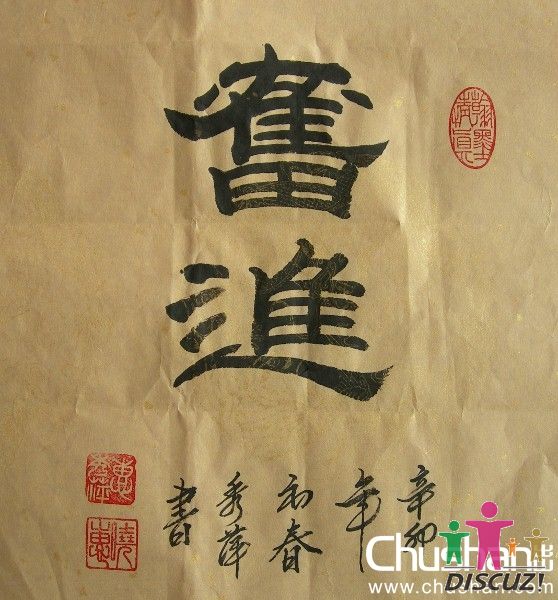 奮進
辛卯
年
初春
秀萍
書
Chushan
www.chushan.com
DISCUZ!